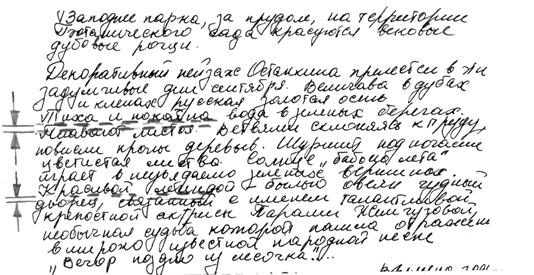 Западнее парка, за прудом, на территории
Ботанического сада красуются вековые
дубовые рощи.
Декоративный пейзаж Останкина прелестен в эти
задумчивые дни сентября. Величава в дубах
и кленах русская золотая осень.
Тиха и покойна вода в земных берегах.
листов. Ветвями склоняясь к пруду,
повисли кроны деревьев. Шуршит под ногами
цветистая листва. Солнце "бабьего лета"
играет в неувядаемо зеленых вершинах.
Красивой легендой - былью овеян чудный
дворец, связанный с именем талантливой
крепостной актрисы Параши Жемчуговой,
необычная судьба которой нашла отражение
в широко известной народной песне
"Вечор поздно из лесочка"...